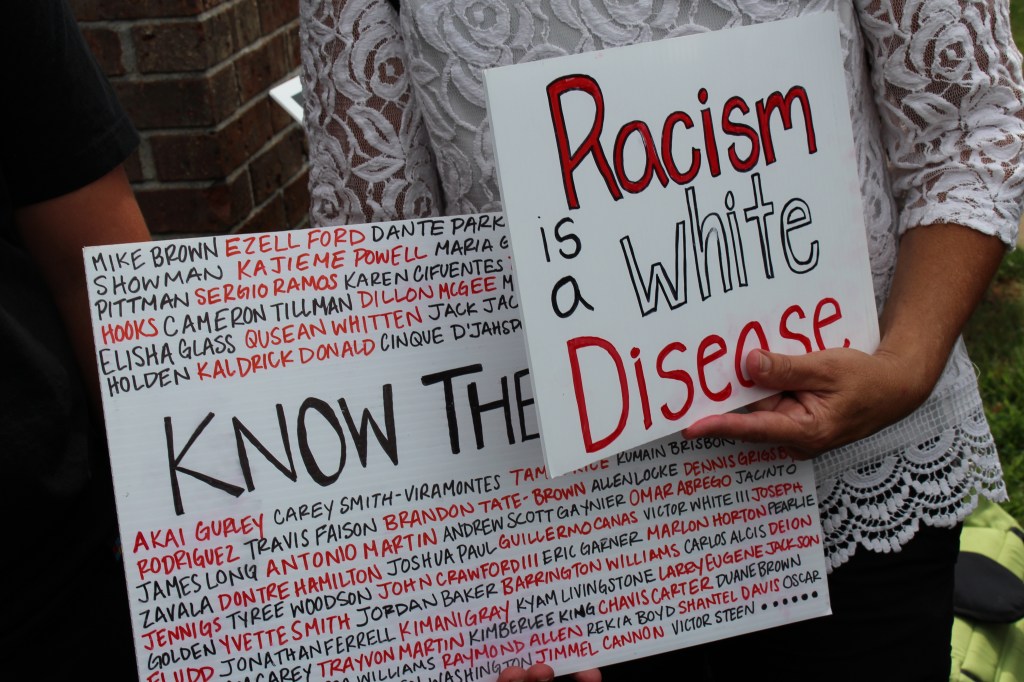 MIKE BROWN EZELL FORD DANTE PARK
SHOWMAN KAJIEME POWELL MARIA
PITTMAN SERGIO RAMOS KAREN CIFUENTES
HOOKS CAMERON TILLMAN DILLON MCGEE
ELISHA GLASS QUSEAN WHITTEN JACK JAC
HOLDEN KALDRICK DONALD CINQUE D'JAHSP
KNOW THE
AKAI GURLEY CAREY SMITH-VIRAMONTES TAM RICE KUMAIN BRISBON
RODRIGUEZ TRAVIS FAISON BRANDON TATE-BROWN ALLEN LOCKE DENNIS GRIGSBY
JAMES LONG ANTONIO MARTIN ANDREW SCOTT GAYNIER OMAR ABREGO JACINTO
ZAVALA DONTRE HAMILTON JOSHUA PAUL GUILLERMO CANAS VICTOR WHITE III JOSEPH
JENNIGS TYREE WOODSON JOHN CRAWFORD III ERIC GARNER MARLON HORTON PEARLIE
GOLDEN YVETTE SMITH JORDAN BAKER BARRINGTON WILLIAMS CARLOS ALCIS DEION
FLUDD JONATHAN FERRELL KIMANI GRAY KYAM LIVINGSTONE LAREY EUGENE JACKSON
CAREY TRAYVON MARTIN KIMBERLEE KING CHAVIS CARTER DUANE BROWN
WILLIAMS RAYMOND ALLEN REKIA BOYD SHANTEL DAVIS OSCAR
WASHINGTON JIMMEL CANNON VICTOR STEEN ······
Racism
is a white
Disease